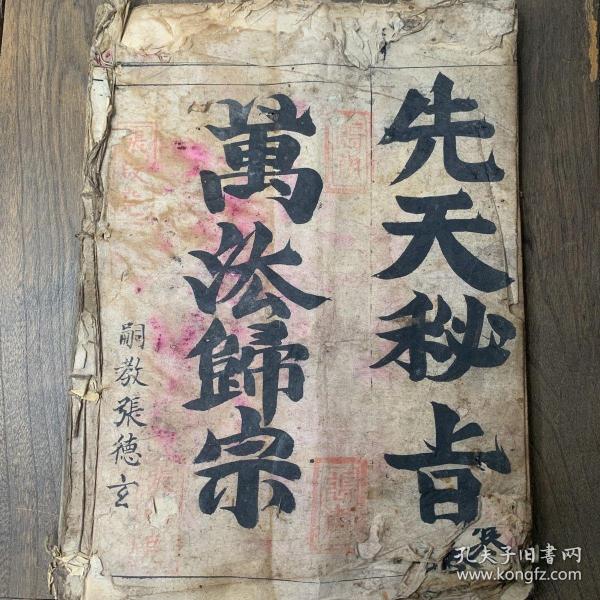 先天秘旨
萬法歸宗
嗣教張德玄
孔夫子旧书网
www.kongfz.com